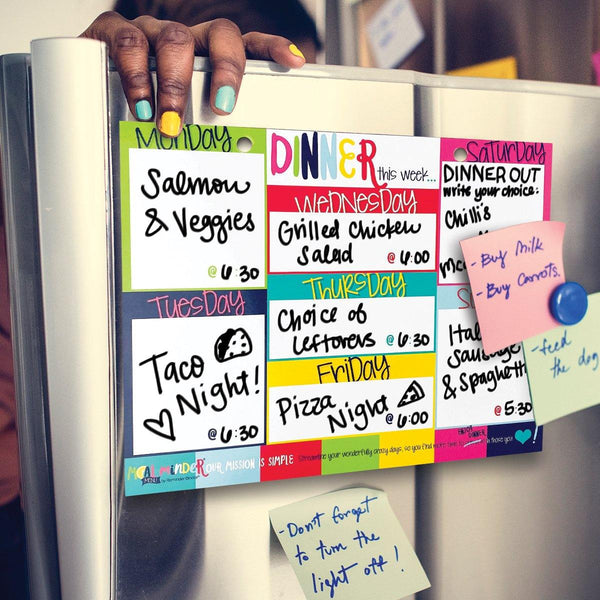 MONDAY
Salmon
& Veggies
@ 6:30
DINNER this week...
WEDNESDAY
Grilled Chicken
Salad @ 6:00
SATURDAY
DINNER OUT
write your choice:
Chilli's
- Buy Milk
- Buy Carrots.
TUESDAY
Taco
Night!
@ 6:30
THURSDAY
Choice of
Leftovers @ 6:30
FRIDAY
Pizza
Night @ 6:00
& Spaghetti
@ 5:30
- feed
the dog
MEALMINDER OUR MISSION IS SIMPLE Streamline your wonderfully crazy days, so you find more time to in those you !
- Don't forget
to turn the
light off!